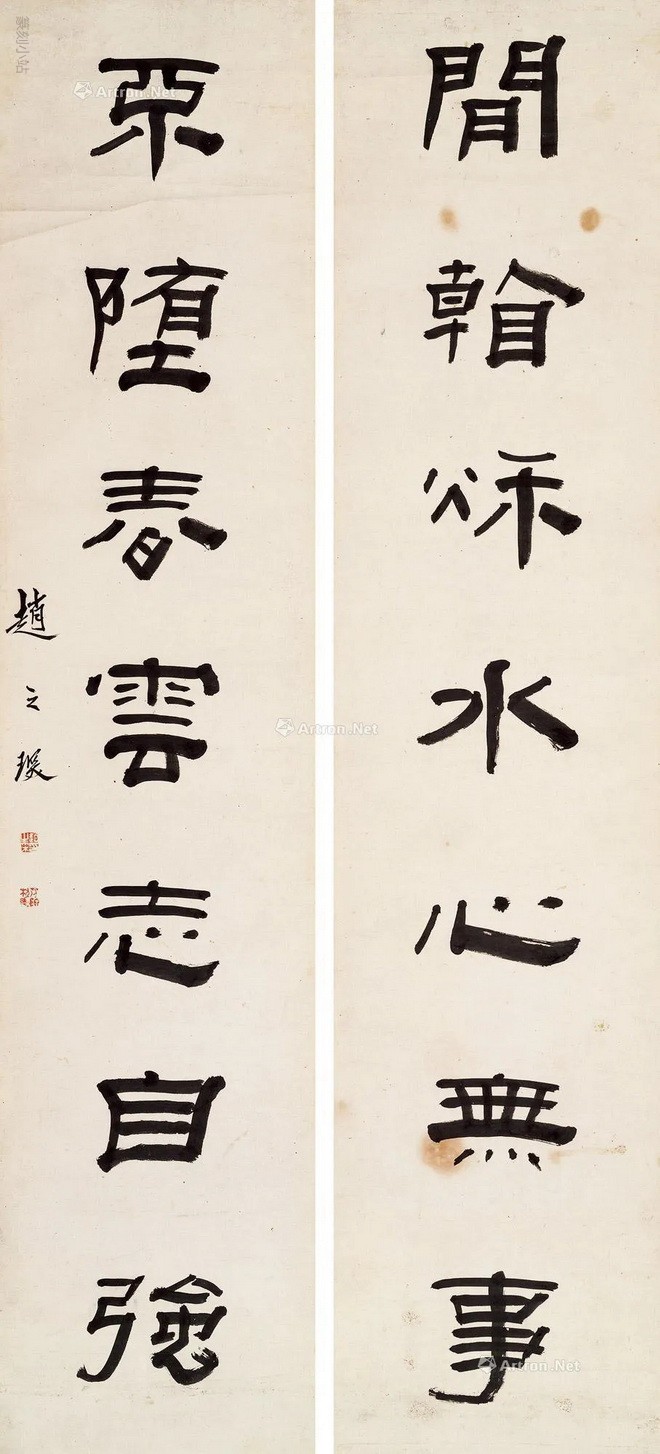 間看秋水心無事
墮春雲志自強
趙之琛
篆刻小站
Artron.Net
Artron.Net
Artron.Net